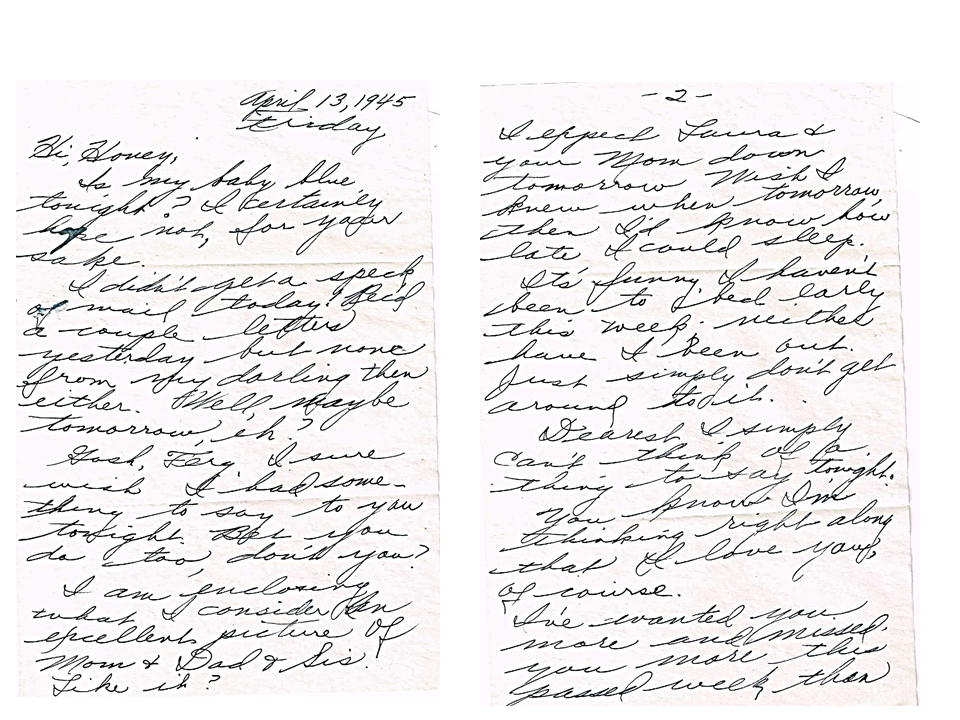 April 13, 1945
Friday
Hi, Honey,
Is my baby blue
tonight? I certainly
hope not, for your
sake.
I didn't get a speck
of mail today! Rec'd
a couple letters
yesterday but none
from my darling then
either. Well, maybe
tomorrow, eh?
Gosh, Ferg, I sure
wish I had some-
thing to say to you
tonight. Bet you
do too, don't you?
I am enclosing
what I consider an
excellent picture of
Mom & Dad & Sis.
Like it?
-2-
I expect Laura &
your Mom down
tomorrow. Wish I
knew when tomorrow,
then I'd know how
late I could sleep.
It's funny, I haven't
been to bed early
this week, neither
have I been out.
Just simply don't get
around to it.
Dearest, I simply
can't think of a
thing to say tonight.
You know I'm
thinking right along
that I love you,
of course.
I've wanted you
more and missed
you more this
passed week than